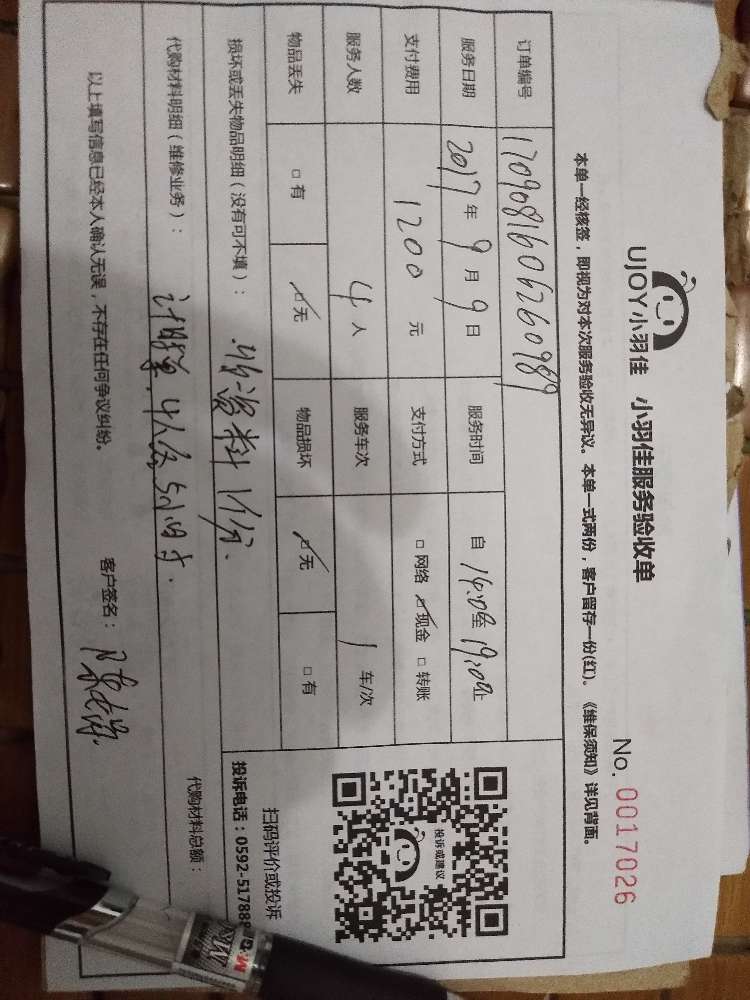 UJOY小羽佳 小羽佳服务验收单
No. 0017026
本单一经核签，即视为对本次服务验收无异议。本单一式两份，客户留存一份(红)。《维保须知》详见背面。
订单编号 1709081606260989
服务日期 2017年9月9日 服务时间 自14:00至19:00止
支付费用 1200元 支付方式 □网络 ☑现金 □转账
服务人数 4人 服务车次 1车/次
物品丢失 □有 ☑无 物品损坏 ☑无 □有
投诉或建议
扫码评价或投诉
投诉电话：0592-51788
损坏或丢失物品明细（没有可不填）：
资料1份.
代购材料明细（维修业务）： 代购材料总额：
计时单.4人 5小时.
以上填写信息已经本人确认无误，不存在任何争议纠纷。 客户签名：